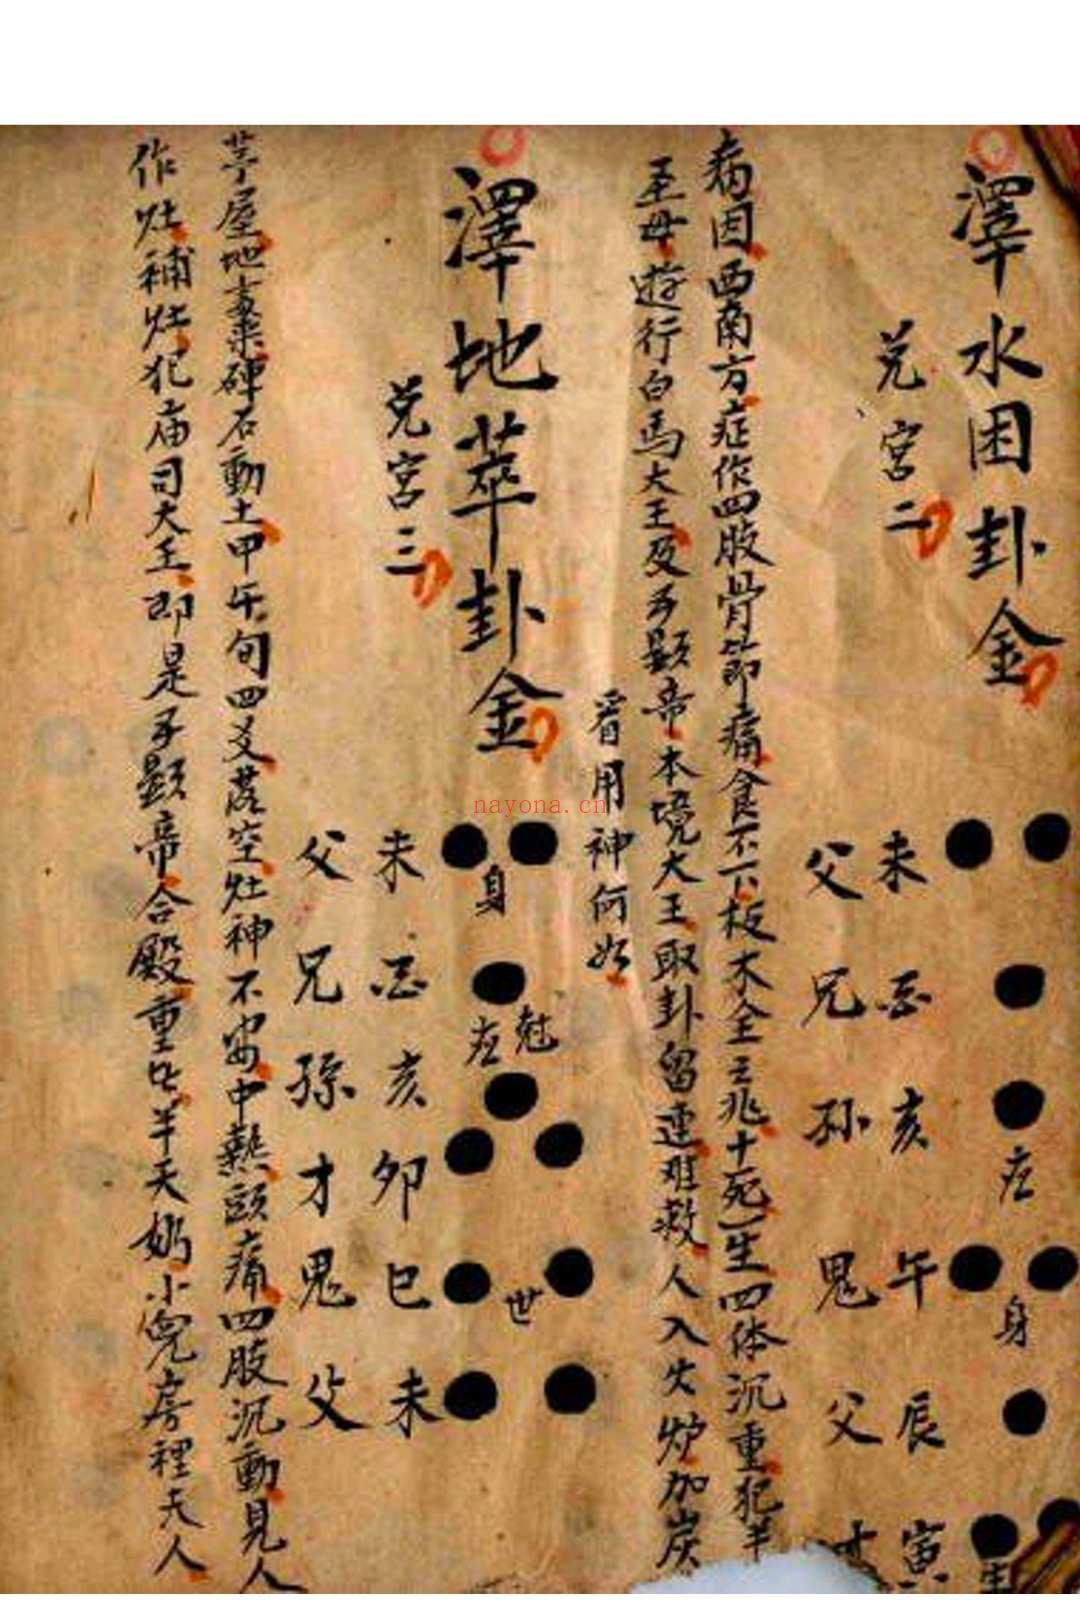 澤水困卦金
兌宮二
未 父
酉 兄
亥 孙
午 鬼
辰 父
寅 才
应
身
世
病因西南方症作四肢骨節痛食不下板木全三兆十死一生四体沉重犯半
王母遊行白馬大王及子顯帝本境大王取卦留連难救人入火炉加炭
看用神何如
澤地萃卦金
兌宮三
身
应
世
未 父
酉 兄
亥 孫
卯 才
巳 鬼
未 父
屋地棄磚石動土甲午旬四爻落空灶神不安中熱頭痛四肢沉動見人
作灶補灶犯庙司大王即是子顯帝合殿重七半天奶小兒房裡夫人
nayona.cn